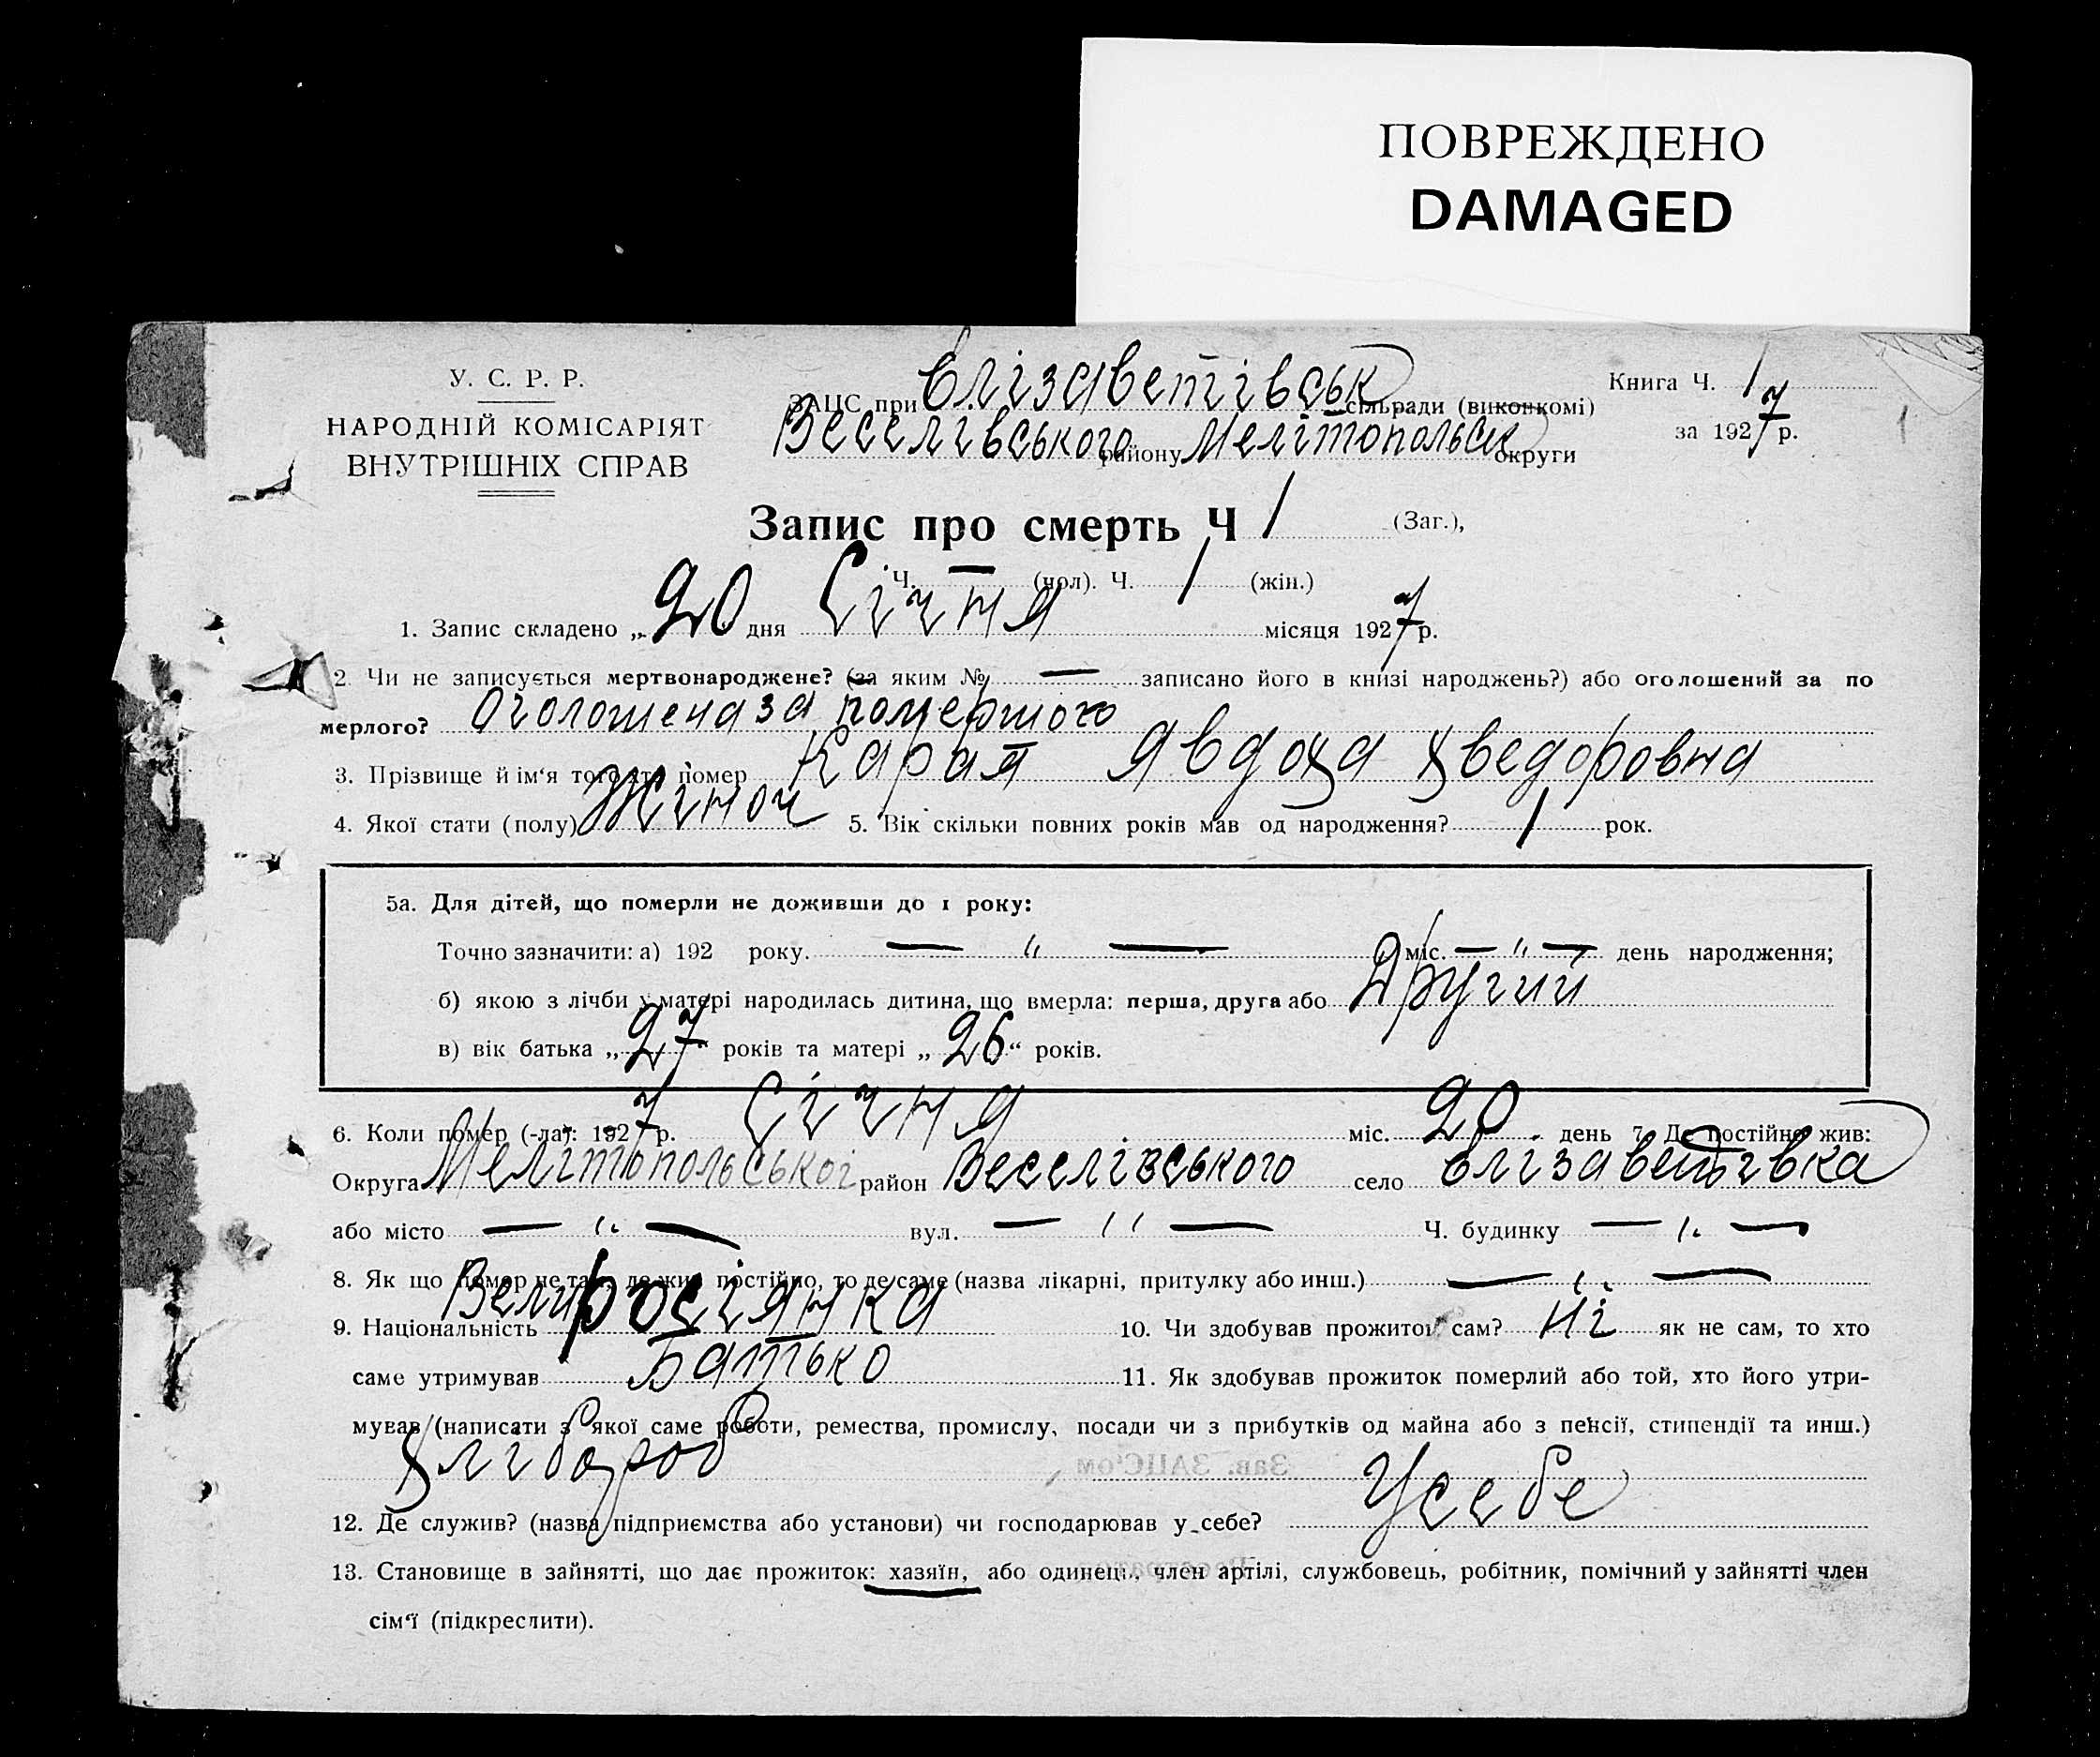 ПОВРЕЖДЕНО
DAMAGED
У. С. Р. Р.
НАРОДНІЙ КОМІСАРІЯТ
ВНУТРІШНІХ СПРАВ
ЗАЦС при Єлізаветівськ сільради (виконкомі)
Веселівського району Мелітопольськ округи
Книга Ч. 1
за 1927 р.
1
Запис про смерть Ч 1 (Заг.),
Ч. — (чол). Ч. 1 (жін.)
1. Запис складено „ 20 дня Січня місяця 1927 р.
2. Чи не записується мертвонароджене? (за яким № — записано його в книзі народжень?) або оголошений за по
мерлого? Оголошена за помершого
3. Прізвище й ім‘я того хто помер Карая Явдоха Хведоровна
4. Якої стати (полу) Жіноч 5. Вік скільки повних років мав од народження? 1 рок.
5а. Для дітей, що померли не доживши до 1 року:
Точно зазначити: а) 192 року. — „ — міс. — „ — день народження;
б) якою з лічби у матері народилась дитина, що вмерла: перша, друга або Другий
в) вік батька „ 27 “ років та матері „ 26 “ років.
6. Коли помер (-ла): 1927 р. Січня міс. 20 день 7. Де постійно жив:
Округа Мелітопольської район Веселівського село Єлізаветівка
або місто — „ — вул. — „ — Ч. будинку — „ —
8. Як що помер не там, де жив постійно, то де саме (назва лікарні, притулку або инш.) — „ —
9. Національність Великросіянка 10. Чи здобував прожиток сам? Ні як не сам, то хто
саме утримував Батько 11. Як здобував прожиток померлий або той, хто його утри-
мував (написати з якої саме роботи, ремества, промислу, посади чи з прибутків од майна або з пенсії, стипендії та инш.)
Хлібороб
Зав. ЗАЦС‘ом
12. Де служив? (назва підприємства або установи) чи господарював у себе? Усебе
13. Становище в зайнятті, що дає прожиток: хазяїн, або одинець, член артілі, службовець, робітник, помічний у зайнятті член
сім‘ї (підкреслити).